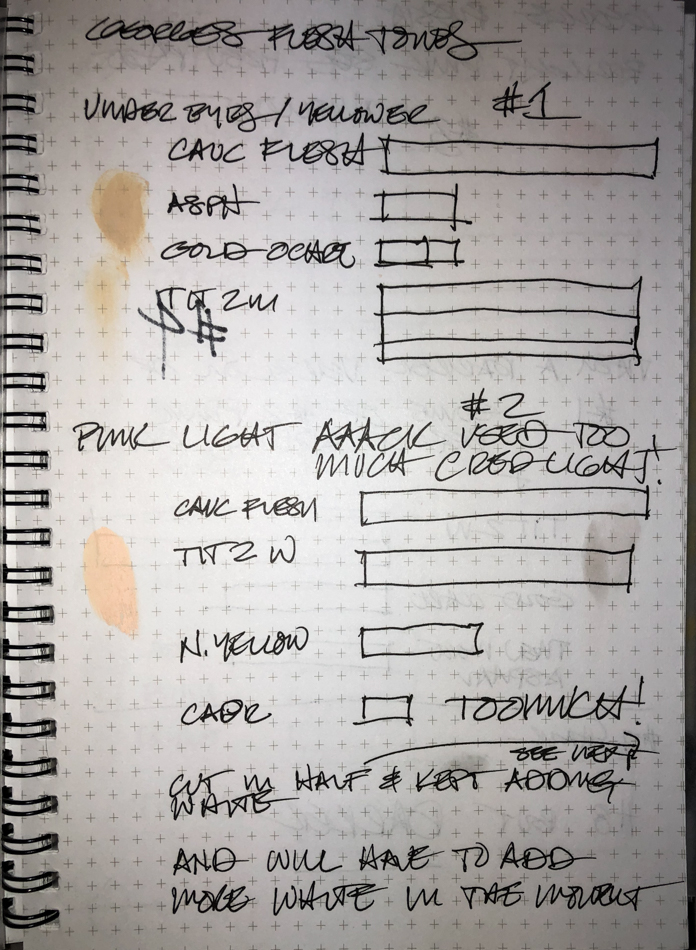 GEORGES FLESH TONES
UNDER EYES / YELLOWER #1
CAUC FLESH
ASPH
GOLD OCHRE
TIT Z W
#4
#2
PINK LIGHT AAACK USED TOO
MUCH C RED LIGHT!
CAUC FLESH
TIT Z W
N. YELLOW
CADR TOO MUCH!
SEE NEXT
CUT IN HALF & KEPT ADDING
WHITE
AND WILL HAVE TO ADD
MORE WHITE IN THE MOMENT